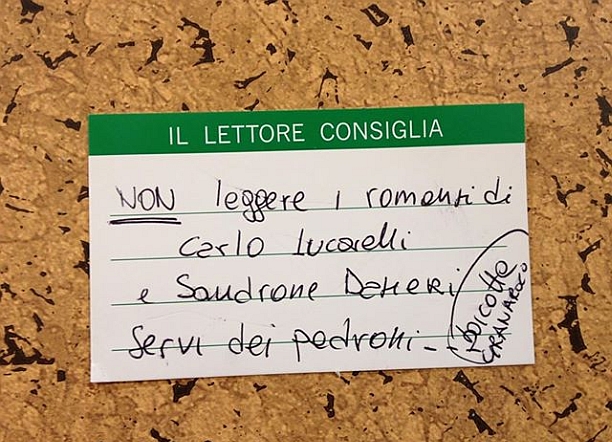 IL LETTORE CONSIGLIA
NON leggere i romanzi di
Carlo Lucarelli
e Sandrone Dazieri
Servi dei padroni -
boicotta
GRANAROLO